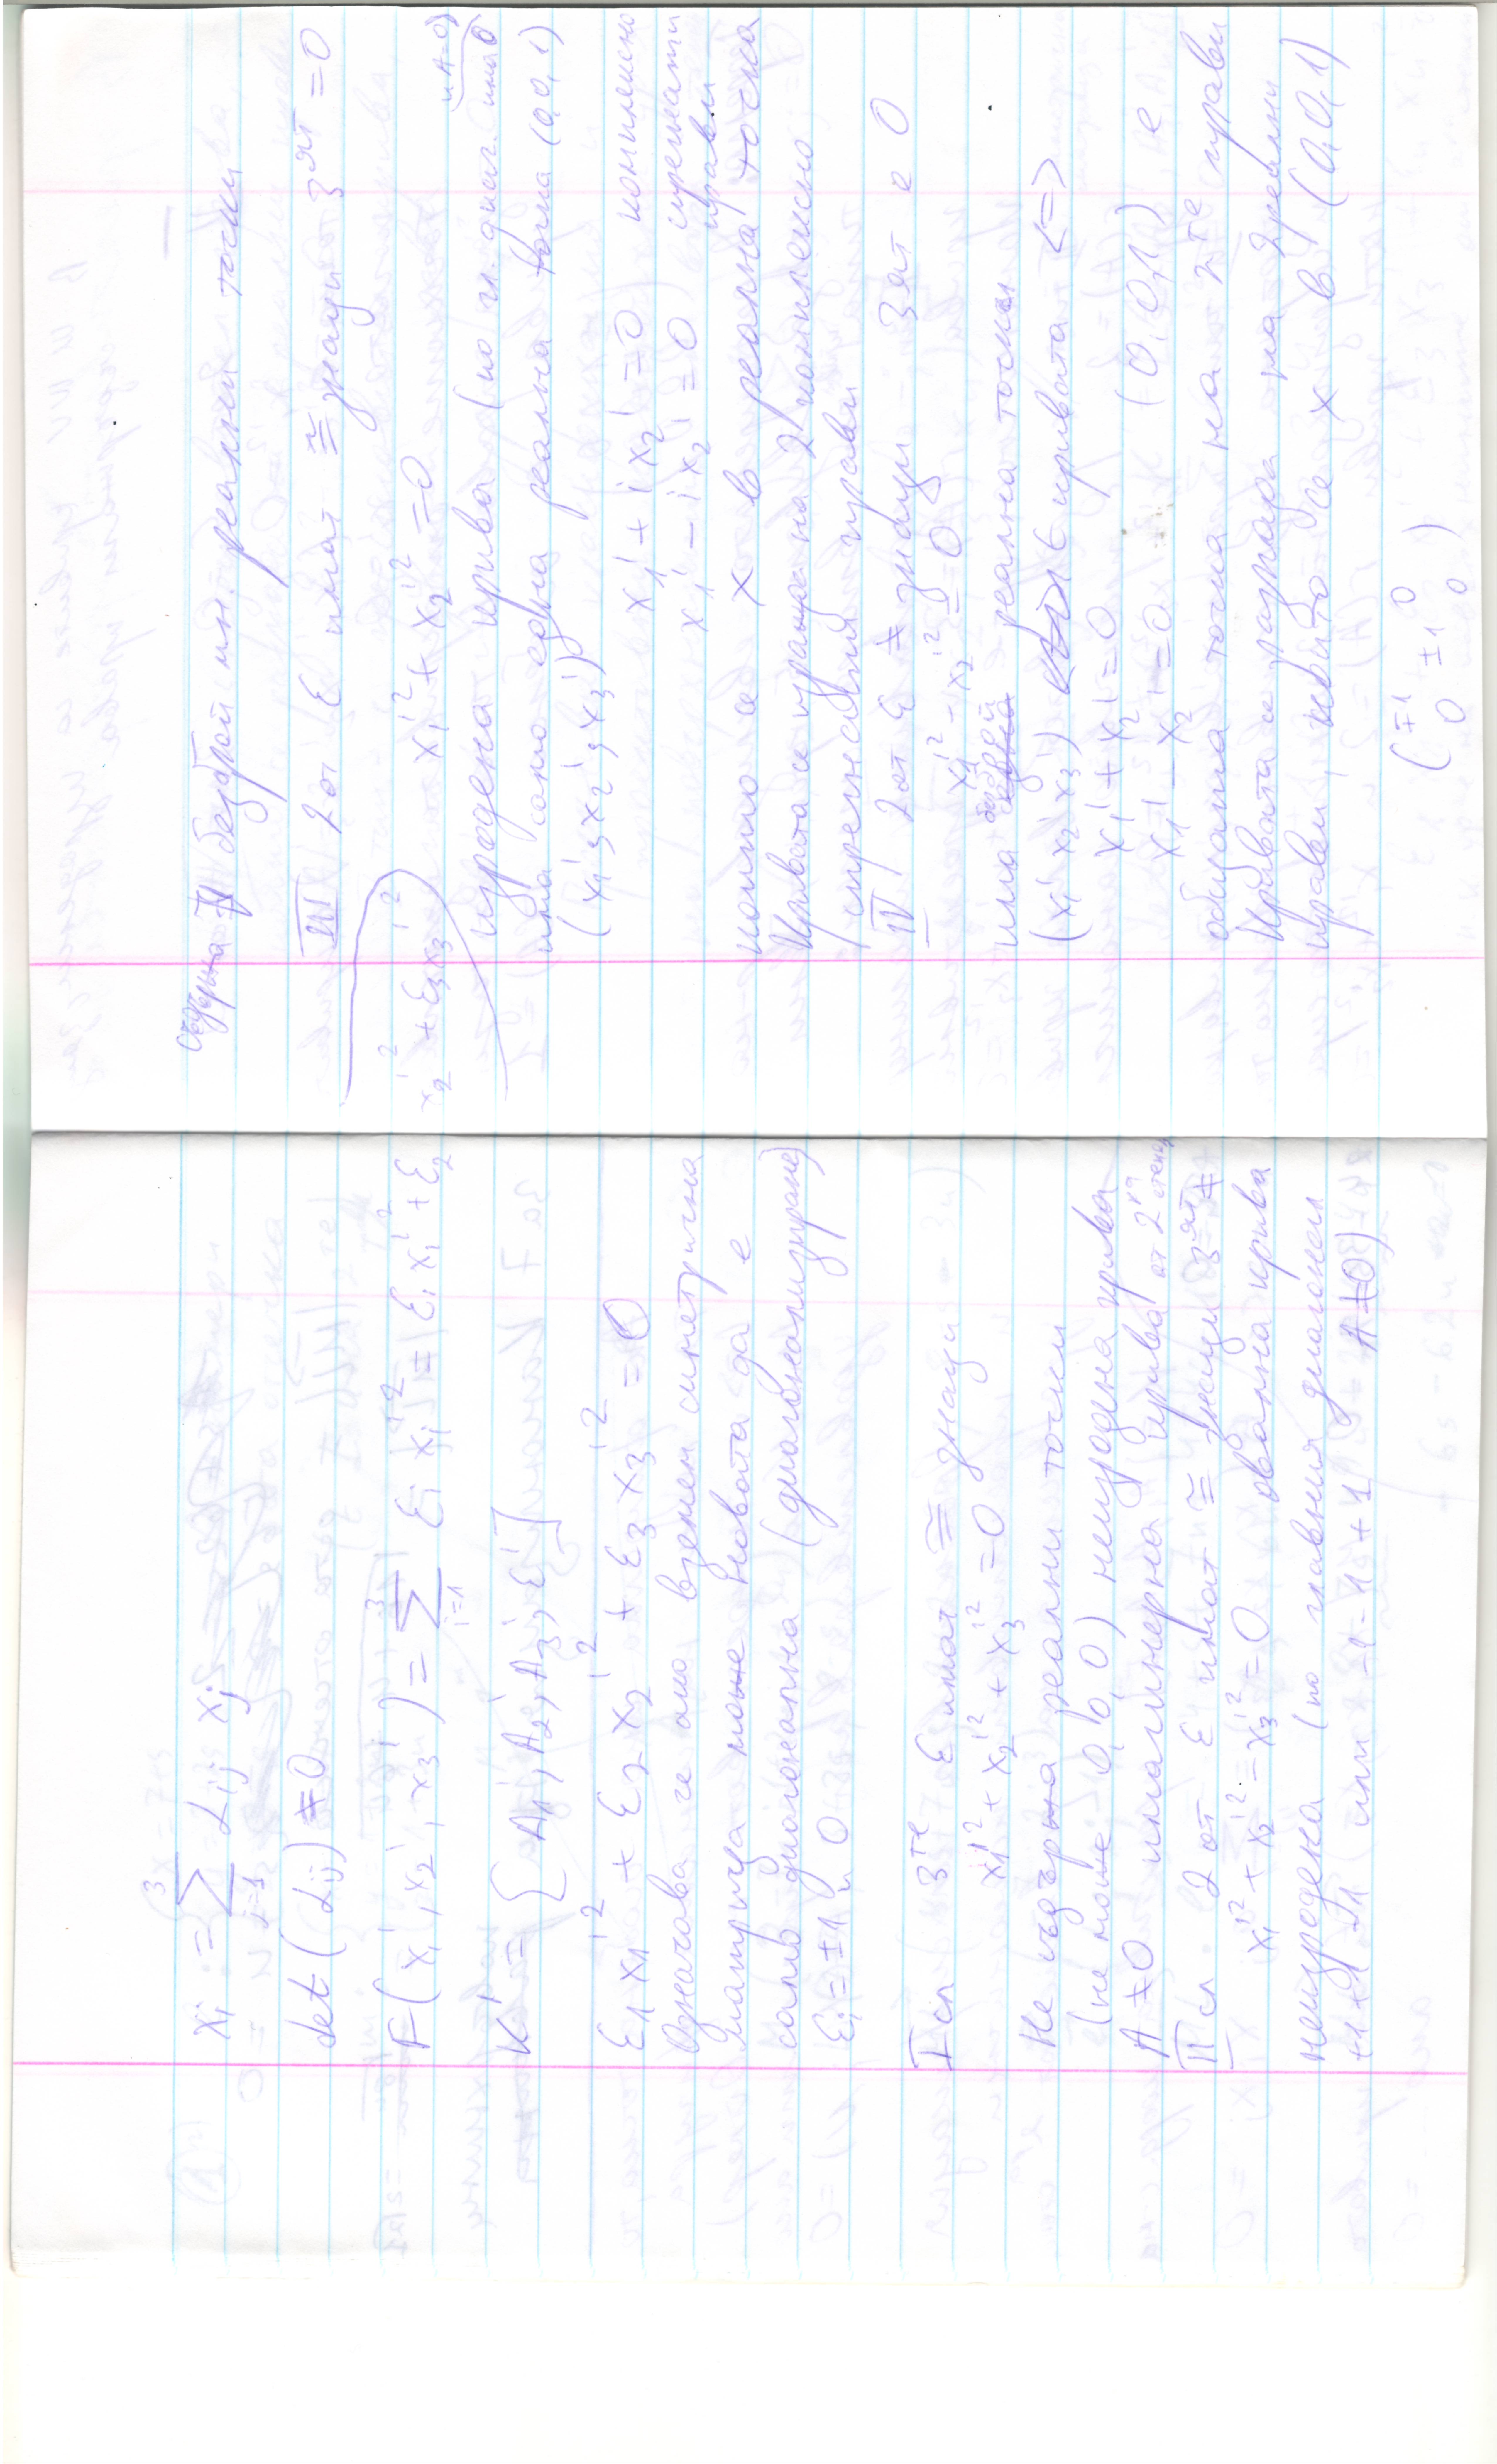 xᵢ = Σ αᵢⱼ xⱼ (j=1, 3)
det (αᵢⱼ) ≠ 0
F(x₁', x₂', x₃') = Σ εᵢ xᵢ'² = ε₁ x₁'² + ε₂ x₂'² + ε₃ x₃'²
K' = { A₁', A₂', A₃', E' }
ε₁ x₁'² + ε₂ x₂'² + ε₃ x₃'² = 0
Означава че ако вземем симетрична
матрица може новата да е
само диагонална (диагонализиране)
εᵢ = ±1 и 0
I сл 3те ε имат ≅ знаци
x₁'² + x₂'² + x₃'² = 0
Не съдържа реални точки
(не може 0, 0, 0) неизродена крива
A ≠ 0 имагинерна крива от 2ра степен
II сл. 2 от ε имат ≅ знаци 3ят ≠
x₁'² + x₂'² − x₃'² = 0 овална крива
неизродена (по главния диагонал
+1 +1 −1 или −1 −1 +1 A ≠ 0)
Съдържа безброй мн. реални точки
III 2 от ε имат ≅ знаци 3ят = 0
x₁'² + x₂'² = 0 и A = 0)
изродена крива (по гл. диаг. има 0
има само една реална точка (0, 0, 1)
(x₁', x₂', x₃') x₁' + i x₂' = 0 комплексно
x₁' − i x₂' = 0 спрегнати прави
които се х в реална точка
Кривата се разпада на 2 комплексно
спрегнати прави
IV 2 от ε ≠ знаци 3ят е 0
x₁'² − x₂'² = 0
има безброй реални точки
(x₁' x₂' x₃') ∈ кривата <=>
x₁' + x₂' = 0
x₁' − x₂' = 0 (0, 0, 1) е
общата точка на 2те прави
Кривата се разпада на 2 реални
прави, които се х в (0, 0, 1)
( ∓1 0
0 ±1 0
0 )